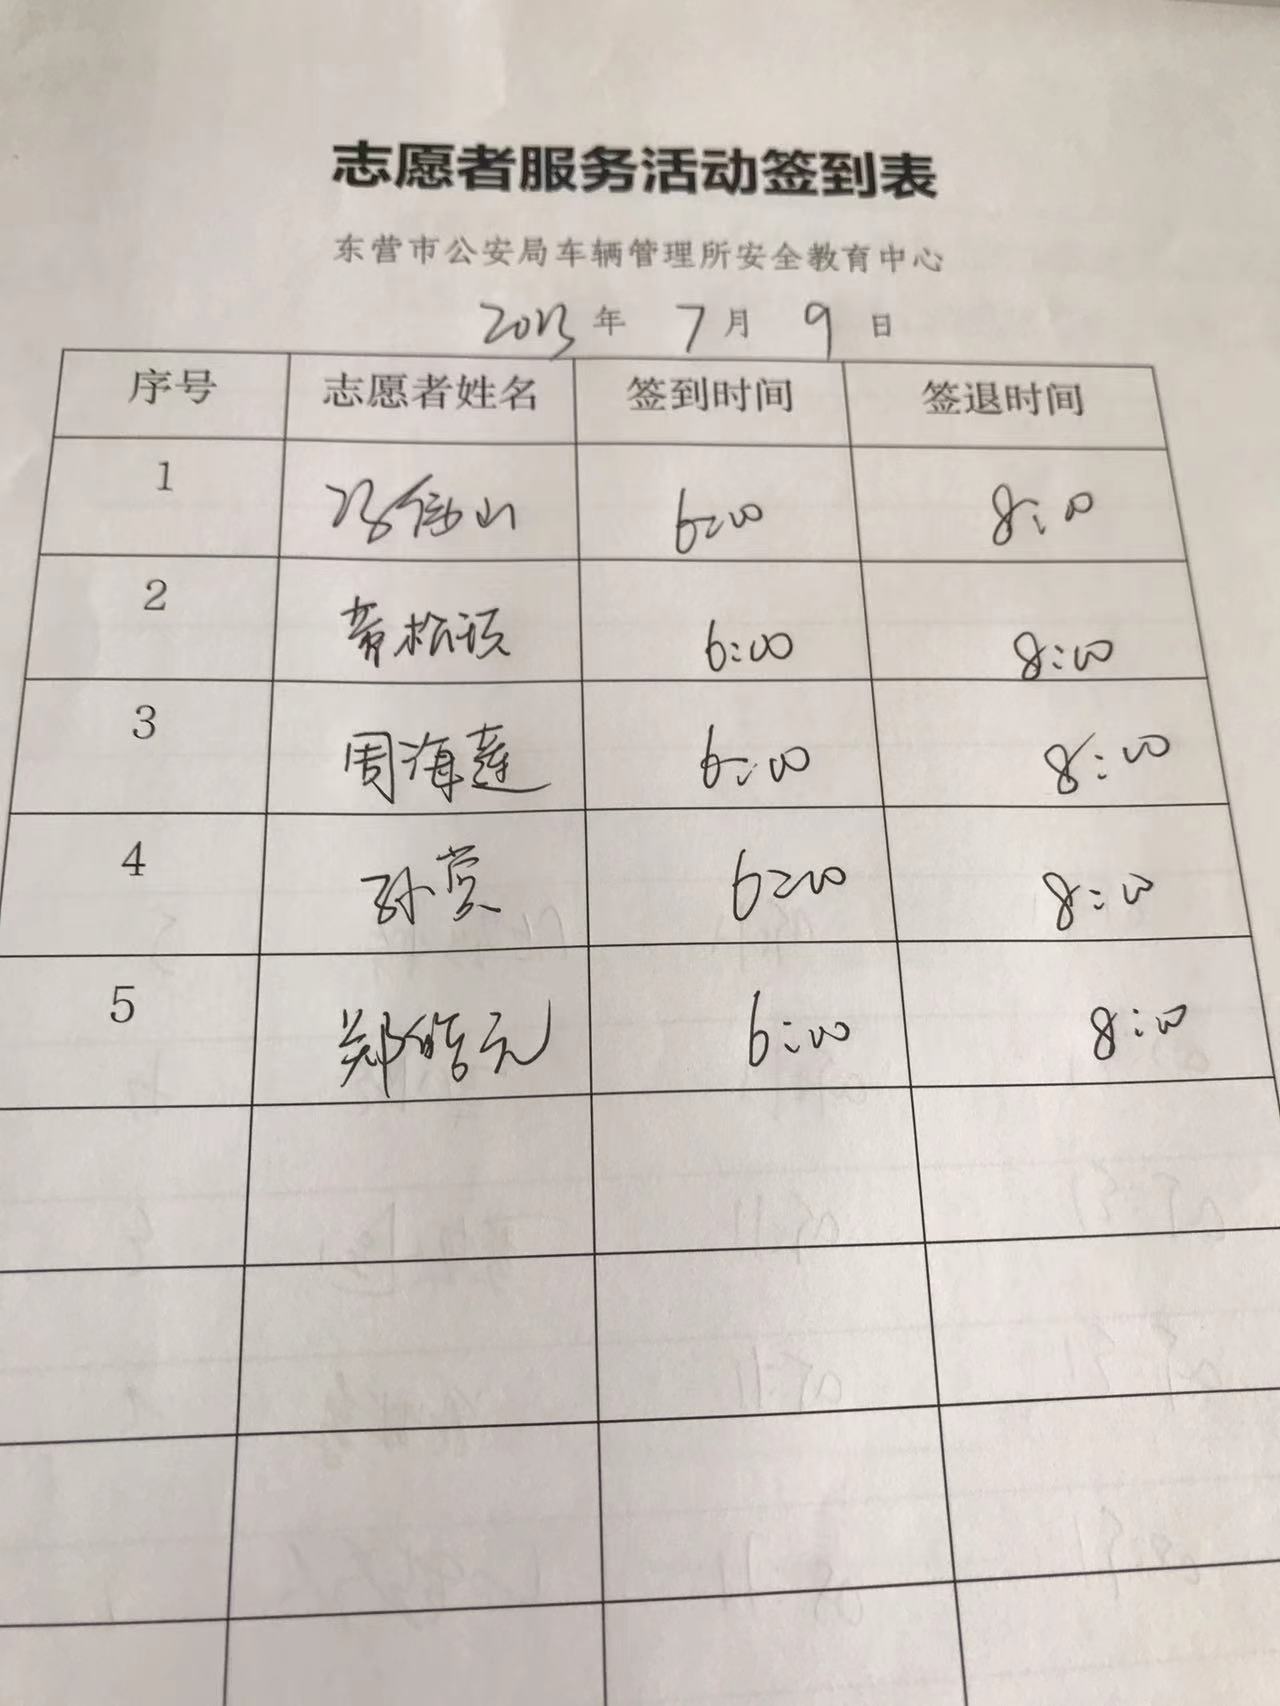 志愿者服务活动签到表
东营市公安局车辆管理所安全教育中心
2023年 7月 9日
序号 志愿者姓名 签到时间 签退时间
1 山 6:00 8:00
2 6:00 8:00
3 周海莲 6:00 8:00
4 孙营 6:00 8:00
5 郑皓元 6:00 8:00